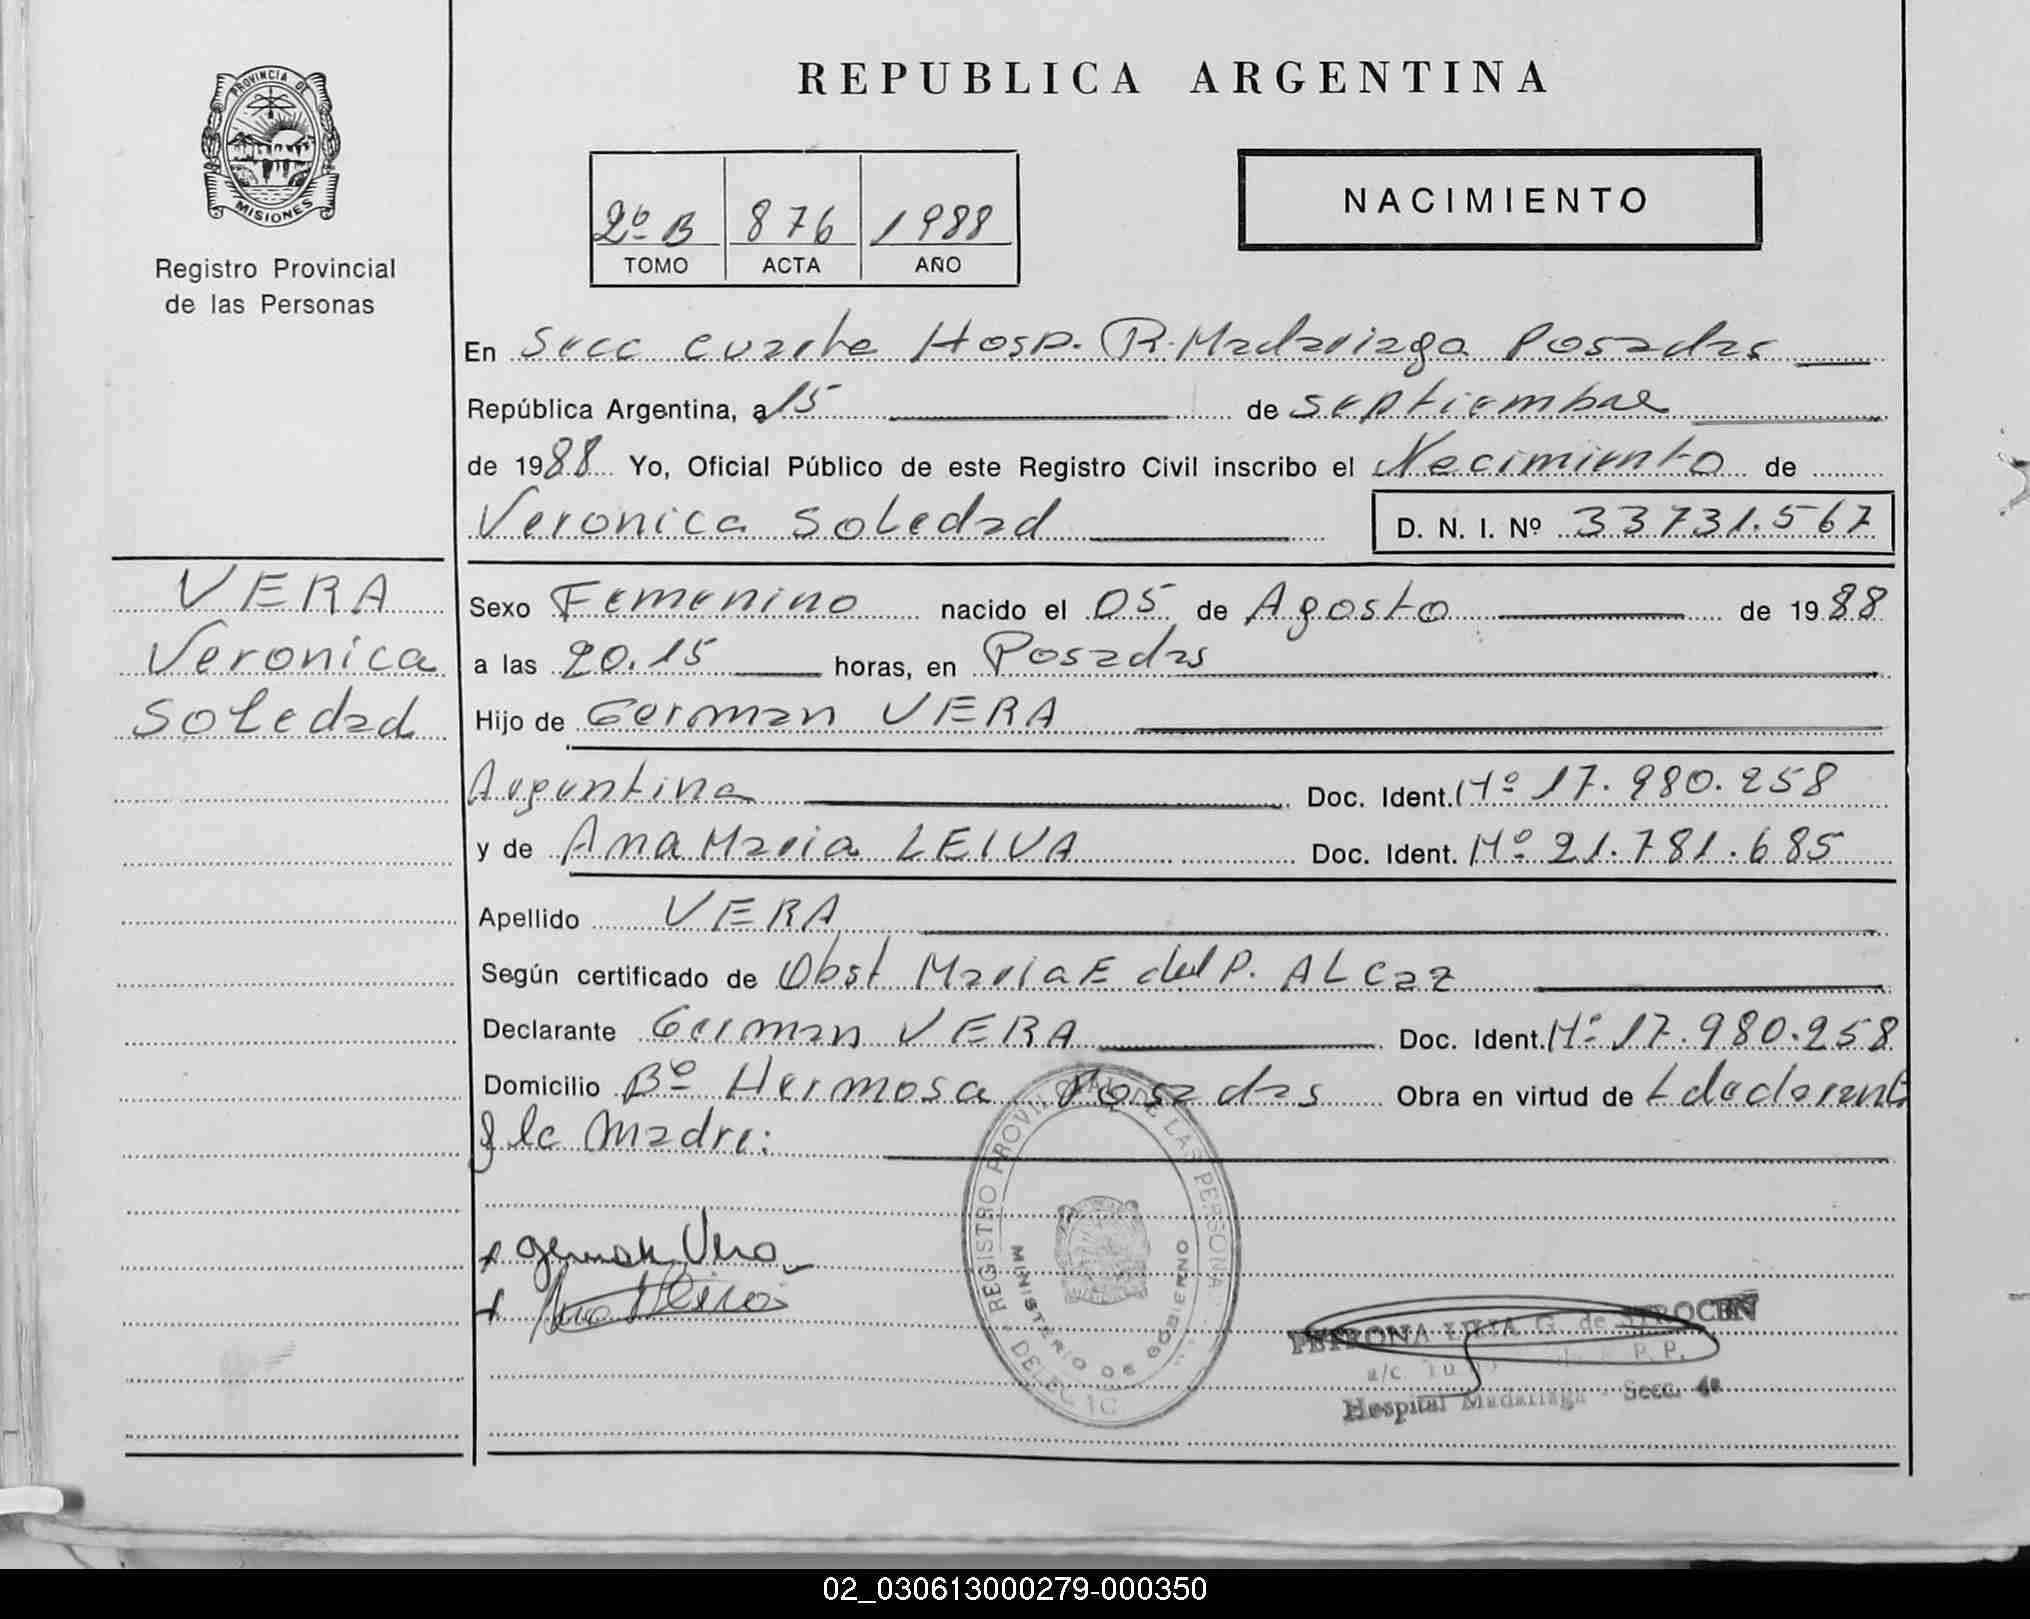 PROVINCIA DE
MISIONES
Registro Provincial
de las Personas
REPUBLICA ARGENTINA
2º B 876 1988
TOMO ACTA AÑO
NACIMIENTO
En Secc cuarta Hosp. R. Madariaga Posadas
República Argentina, a 15 de septiembre
de 1988 Yo, Oficial Público de este Registro Civil inscribo el Nacimiento de
Veronica Soledad D. N. I. Nº 33731.567
VERA
Veronica
Soledad
Sexo Femenino nacido el 05 de Agosto de 1988
a las 20.15 horas, en Posadas
Hijo de German VERA
Argentina Doc. Ident. Mº 17.980.258
y de Ana Maria LEIVA Doc. Ident. Mº 21.781.685
Apellido VERA
Según certificado de Obst Maria E del P. ALCaz
Declarante German VERA Doc. Ident. Mº 17.980.258
Domicilio Bº Hermosa Posadas Obra en virtud de
la Madre:
German Vera
REGISTRO PROVINCIAL DE LAS PERSONAS
MINISTERIO DE GOBIERNO
PETRONA LILIA G. de
a/c R. P. P.
Hospital Madariaga - Secc. 4a
02_030613000279-000350